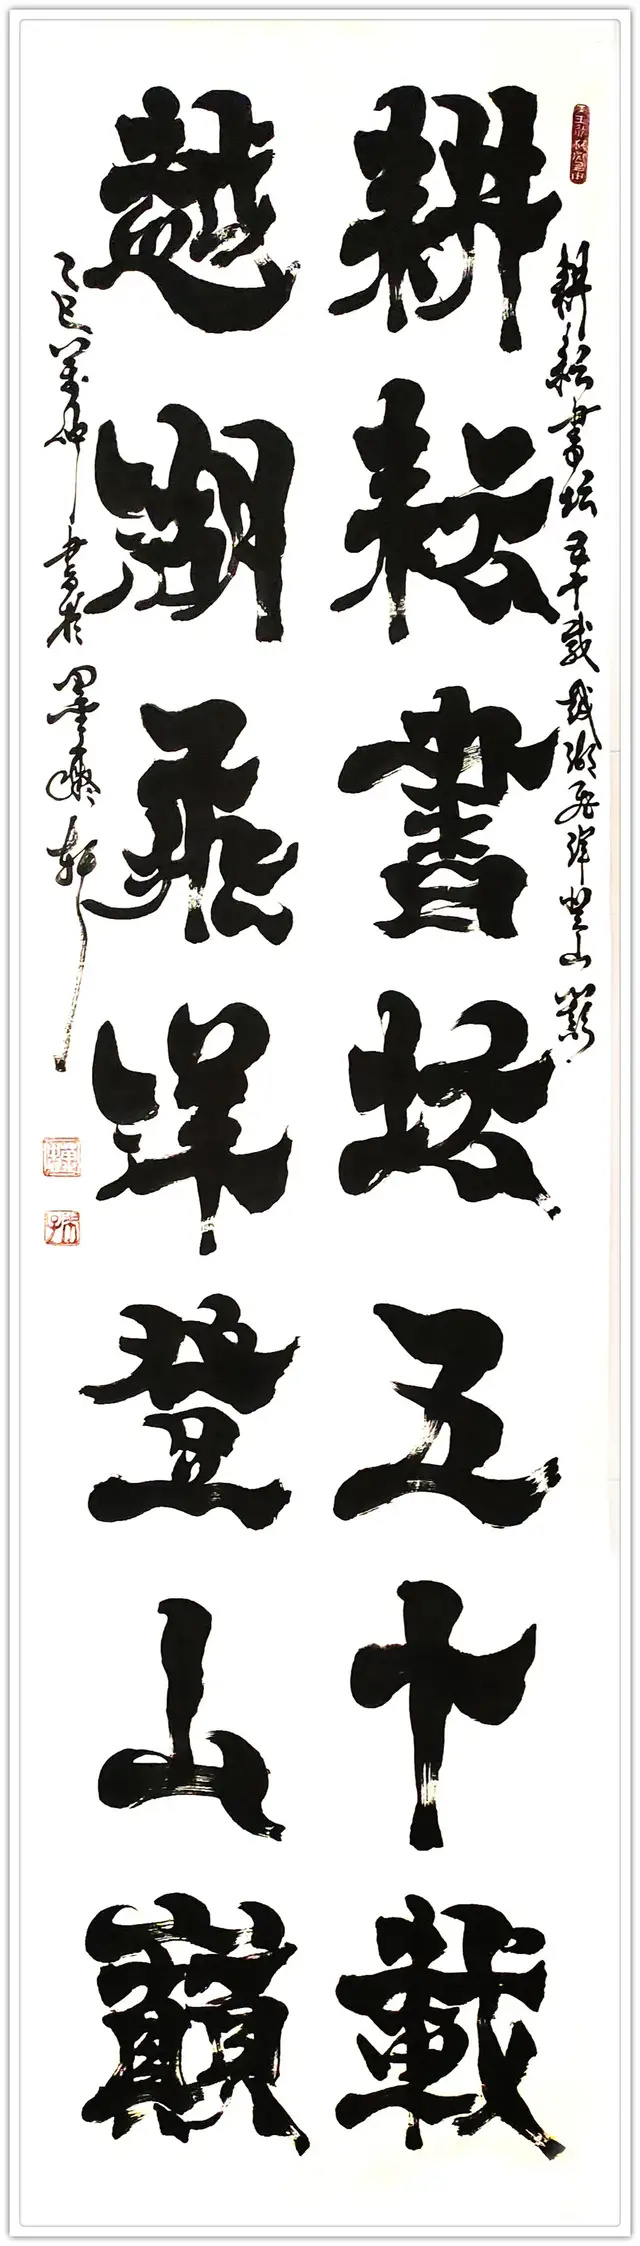 耕耘書坛五十載
越湖飛洋登山巔
耕耘書坛五十載越湖飛洋登山巔
乙巳萬仲書於墨緣軒